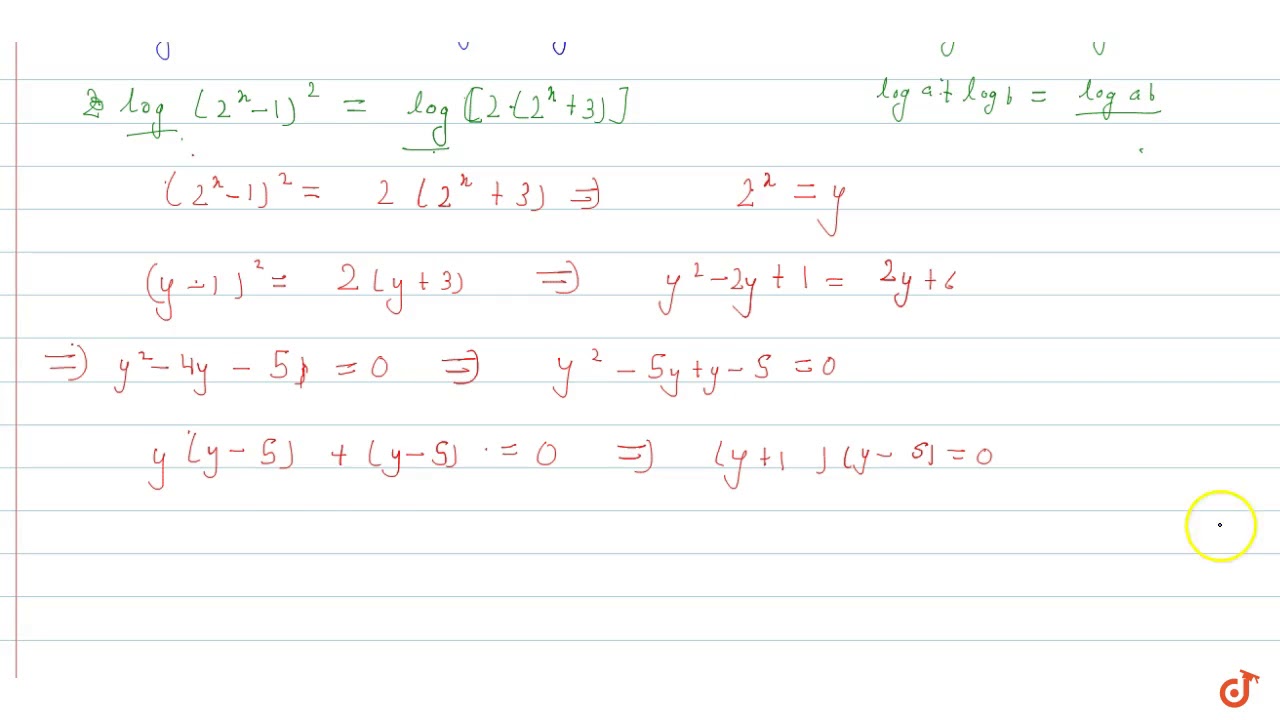 log (2^x - 1)^2 = log [2·(2^x + 3)]
log a + log b = log ab
(2^x - 1)^2 = 2 (2^x + 3) ⇒ 2^x = y
(y - 1)^2 = 2 (y + 3) ⇒ y^2 - 2y + 1 = 2y + 6
⇒ y^2 - 4y - 5 = 0 ⇒ y^2 - 5y + y - 5 = 0
y (y - 5) + (y - 5) = 0 ⇒ (y + 1) (y - 5) = 0